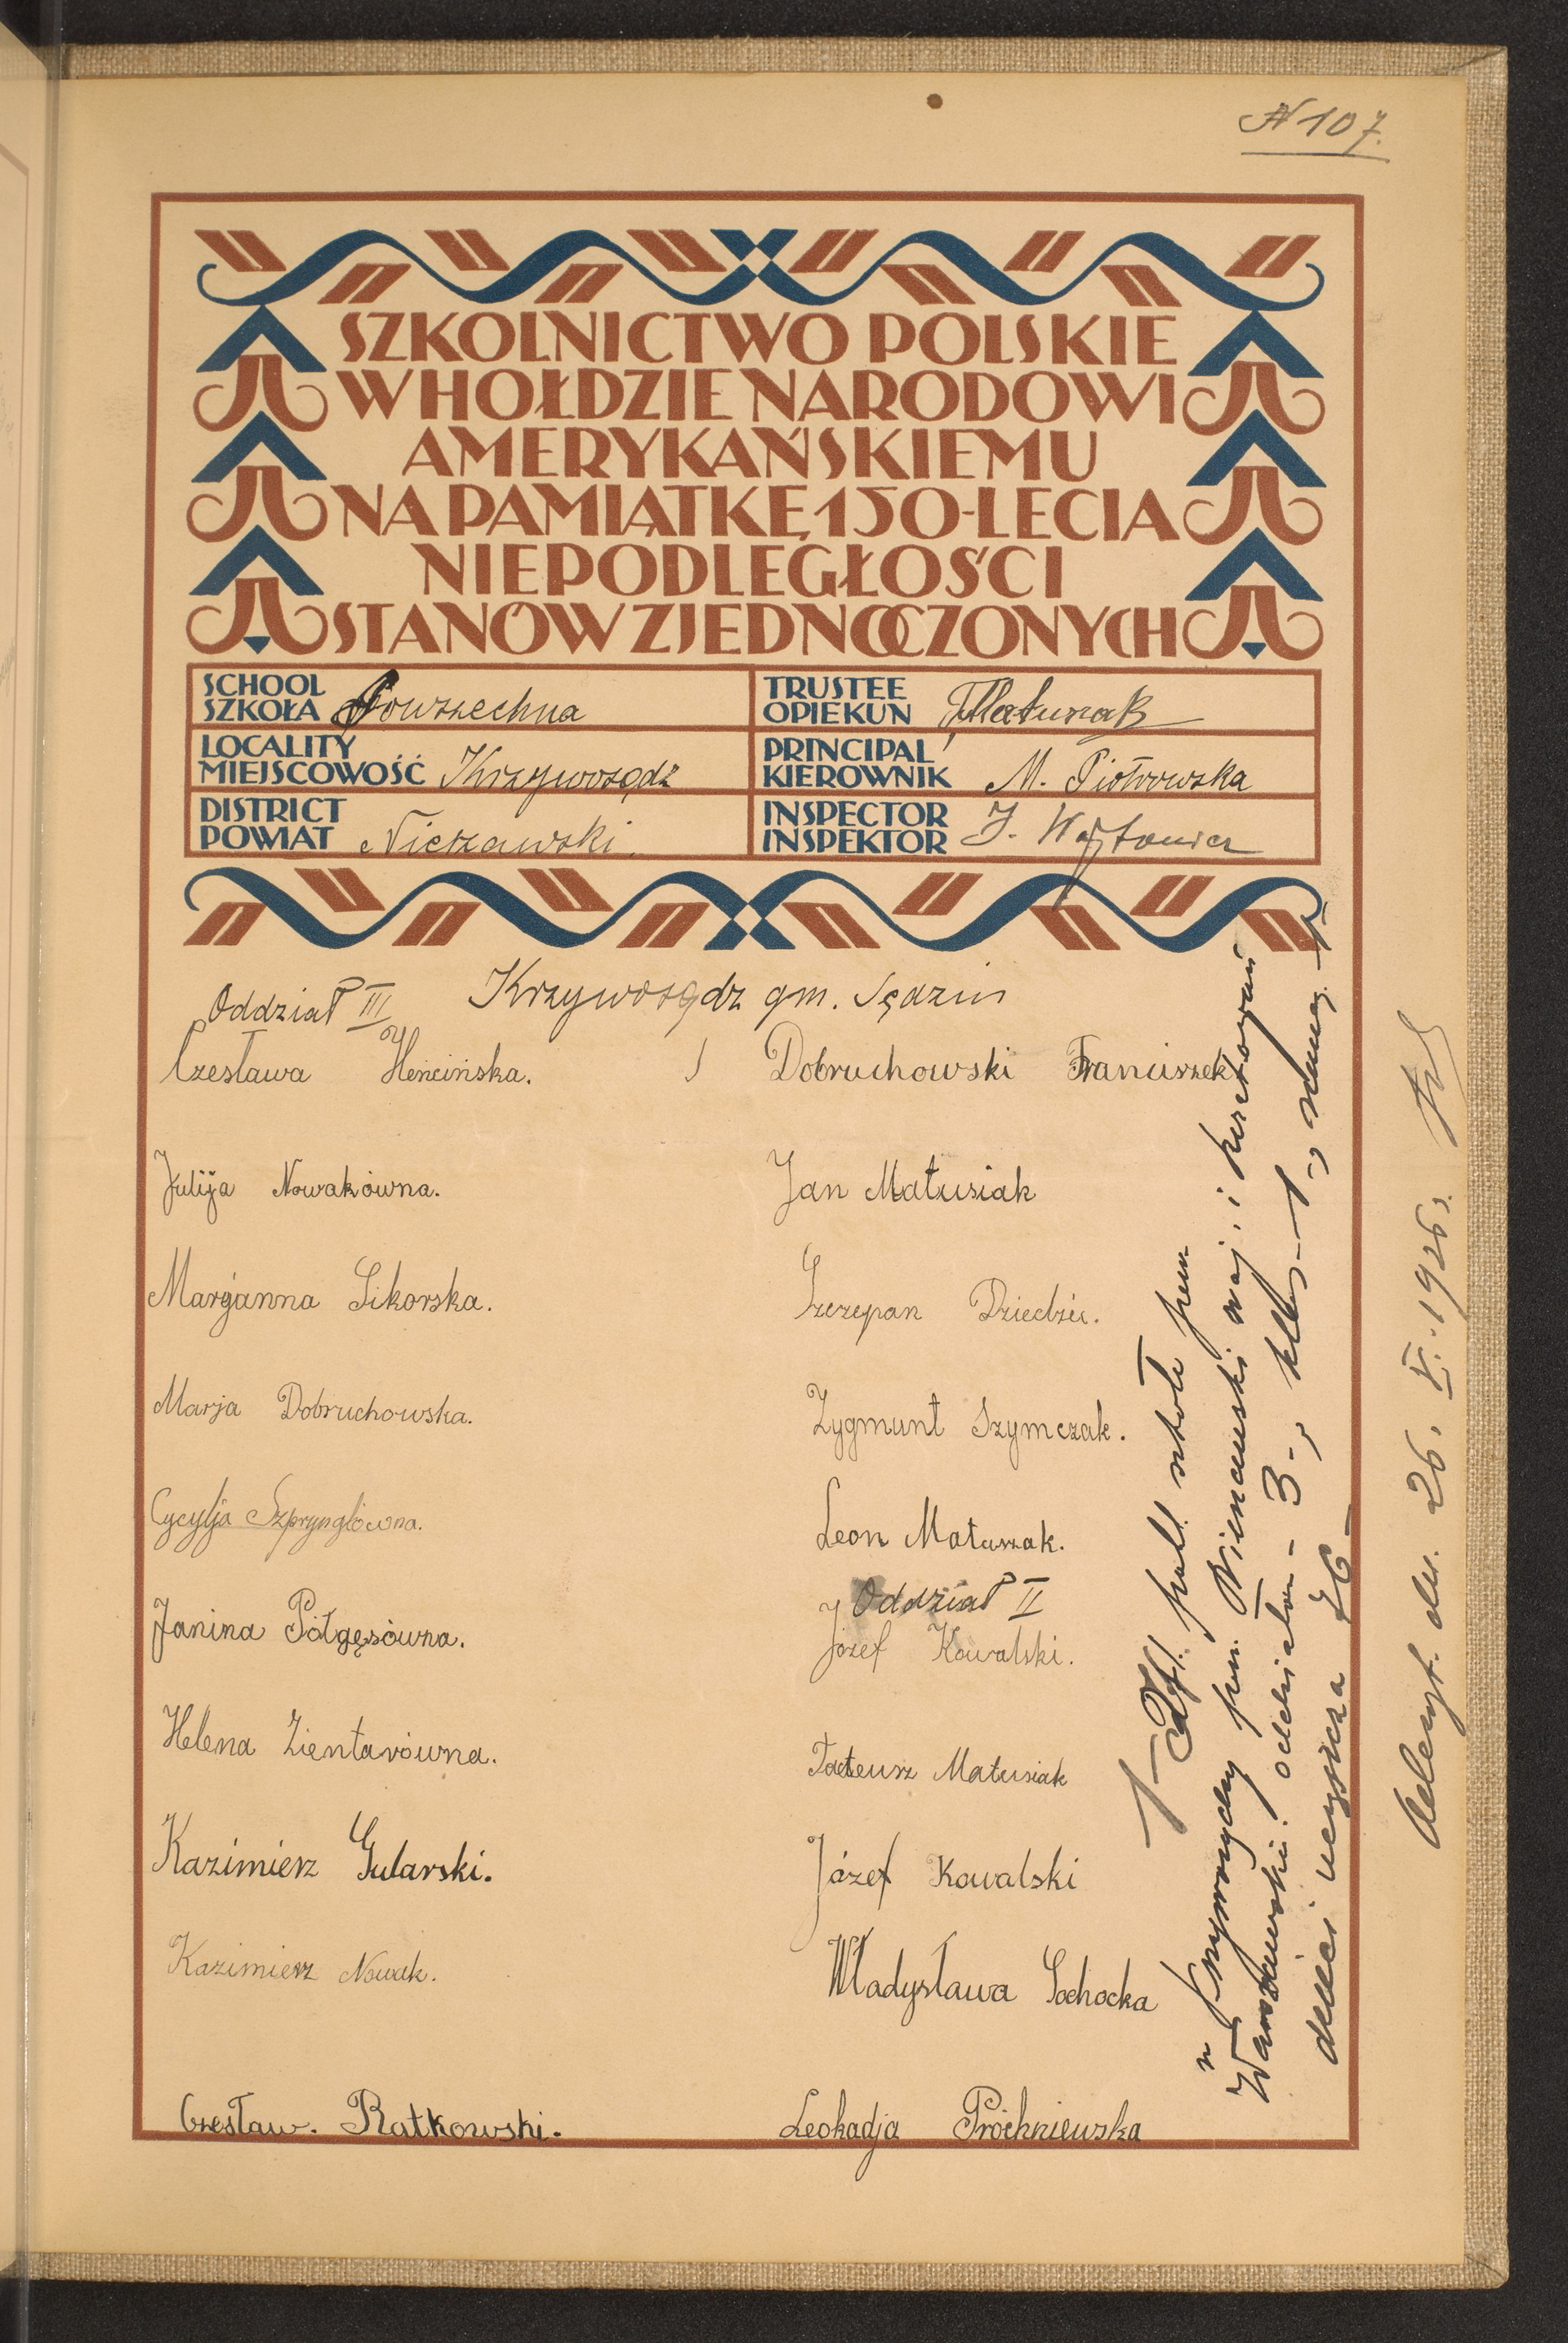 N 107.
SZKOLNICTWO POLSKIE
W HOŁDZIE NARODOWI
AMERYKAŃSKIEMU
NA PAMIĄTKĘ 150-LECIA
NIEPODLEGŁOŚCI
STANÓW ZJEDNOCZONYCH
SCHOOL
SZKOŁA Powszechna
TRUSTEE
OPIEKUN
LOCALITY
MIEJSCOWOŚĆ Krzywosądz
PRINCIPAL
KIEROWNIK M. Piotrowska
DISTRICT
POWIAT Nieszawski.
INSPECTOR
INSPEKTOR J. Wójtowicz
Oddział III Krzywosądz gm. Sędzin
Czesława Hencińska.
Julija Nowakówna.
Marjanna Sikorska.
Marja Dobruchowska.
Cycylja Szprynglówna.
Janina Półgęsówna.
Helena Zientarówna.
Kazimierz Gularski.
Kazimierz Nowak.
Czesław. Ratkowski.
Dobruchowski Franciszek
Jan Matusiak
Szczepan Dziedzic.
Zygmunt Szymczak.
Leon Matuszak.
Oddział II
Józef Kowalski.
Tadeusz Matusiak
Józef Kowalski
Władysława Sochocka
Leokadja Próchniewska
dzieci uczęszcza 76
26. V. 1926 r.